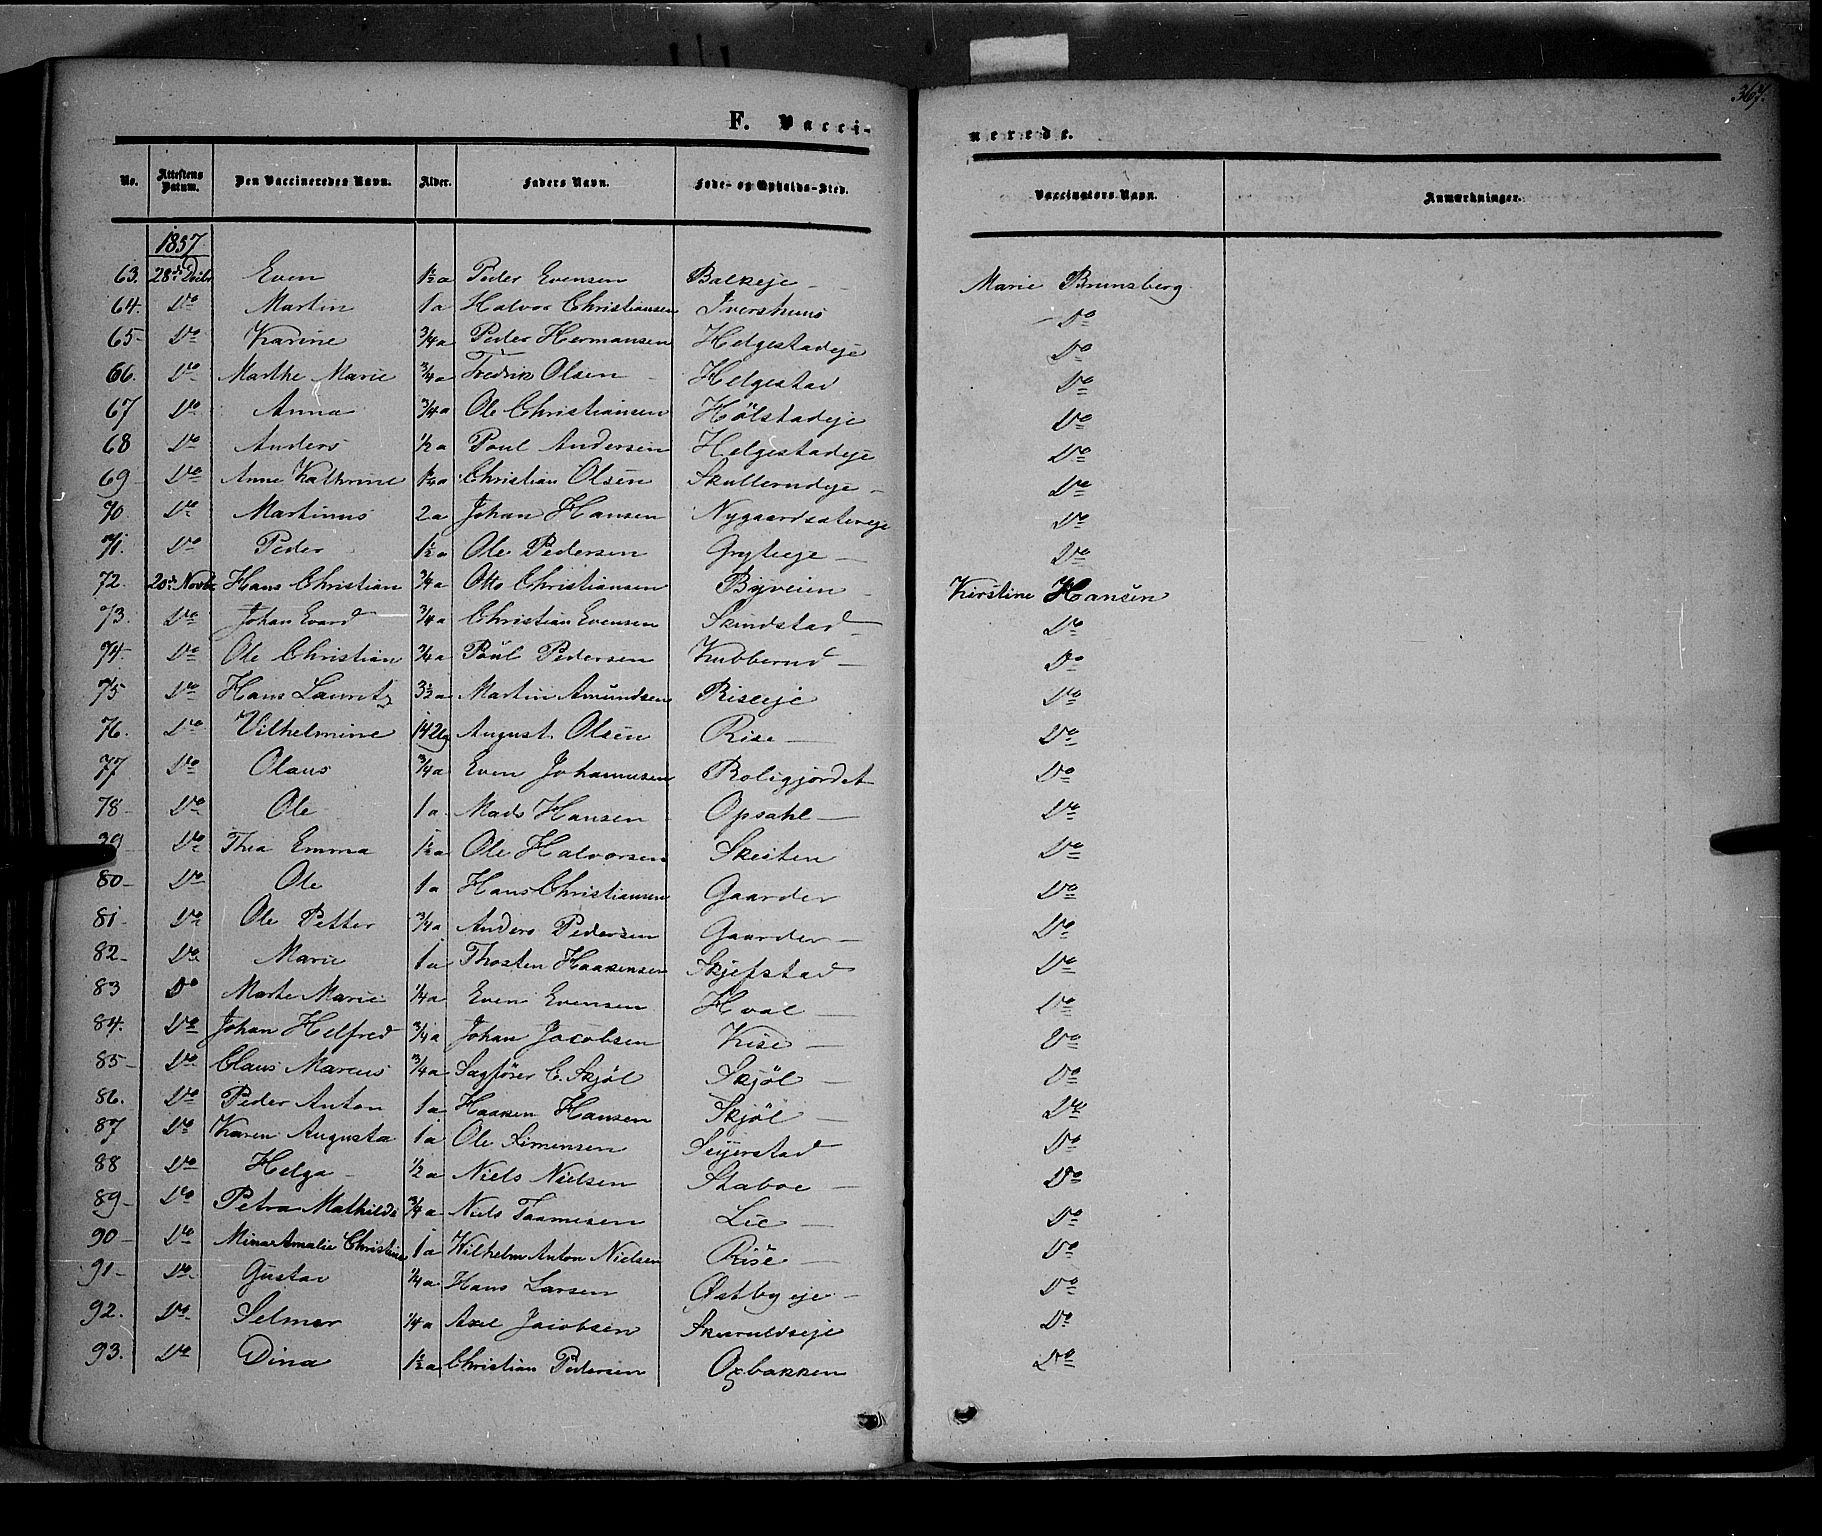 367.
F. Vacci-
nerede.
No. Attestens Datum. Den Vaccineredes Navn. Alder. Faders Navn. Føde- og Opholds-Sted. Vaccinators Navn. Anmærkninger.
1857
63. 28de Decbr Even 1½a Peder Evensen Balkeje Marie Brunsberg
64. Do Martin 1a Halvor Christiansen Ivershuus Do
65 Do Karine ¾a Peder Hermansen Helgestadeje Do
66. Do Marthe Marie ¾a Fredrik Olsen Helgestad Do
67 Do Anna ¾a Ole Christiansen Hölstadeje Do
68 Do Anders ½a Poul Andersen Helgestadeje Do
69 Do Anne Kathrine Christian Olsen Skullerudeje Do
70. Do Martinus 2a Johan Hansen Nygaardsætereje Do
71. Do Peder 1½a Ole Pedersen Gryteeje Do
72. 20de Novbr Hans Christian ¾a Otto Christiansen Byveien Kirstine Hansen
73. Do Johan Evard ¾a Christian Evensen Skindstad Do
74. Do Ole Christian ¾a Poul Pedersen Kubberud Do
75 Do Hans Lauritz 3½a Martin Amundsen Riseeje Do
76. Do Vilhelmine August Olsen Rise Do
77 Do Olaus ¾a Even Johannesen Boligjordet Do
78 Do Ole 1a Mads Hansen Opsahl Do
79 Do Thea Emma 1½a Ole Halvorsen Skesten Do
80 Do Ole 1a Hans Christiansen Gaarder Do
81 Do Ole Petter ¾a Anders Pedersen Gaarder Do
82 Do Marie 1a Thosten Haakensen Skjefstad Do
83 Do Marte Marie ¼a Even Evensen Hval Do
84. Do Johan Helfred ¾a Johan Jacobsen Kise Do
85 Do Claus Marcus ¾a Sagfører C. Skjøl Skjøl Do
86. Do Peder Anton 1a Haaken Hansen Skjøl Do
87 Do Karen Augusta 1a Ole Simensen Seijerstad Do
88 Do Helga ½a Niels Nielsen Staboe Do
89 Do Petra Mathilde ¾a Niels Taamesen Lie Do
90 Do Mina Amalie Christine 1a Wilhelm Anton Nielsen Rise Do
91 Do Gustav ¼a Hans Larsen Østbyeje Do
92. Do Selmer ¼a Axel Jacobsen Skaruldseje Do
93. Do Dina 1½a Christian Pedersen Oxbakken Do